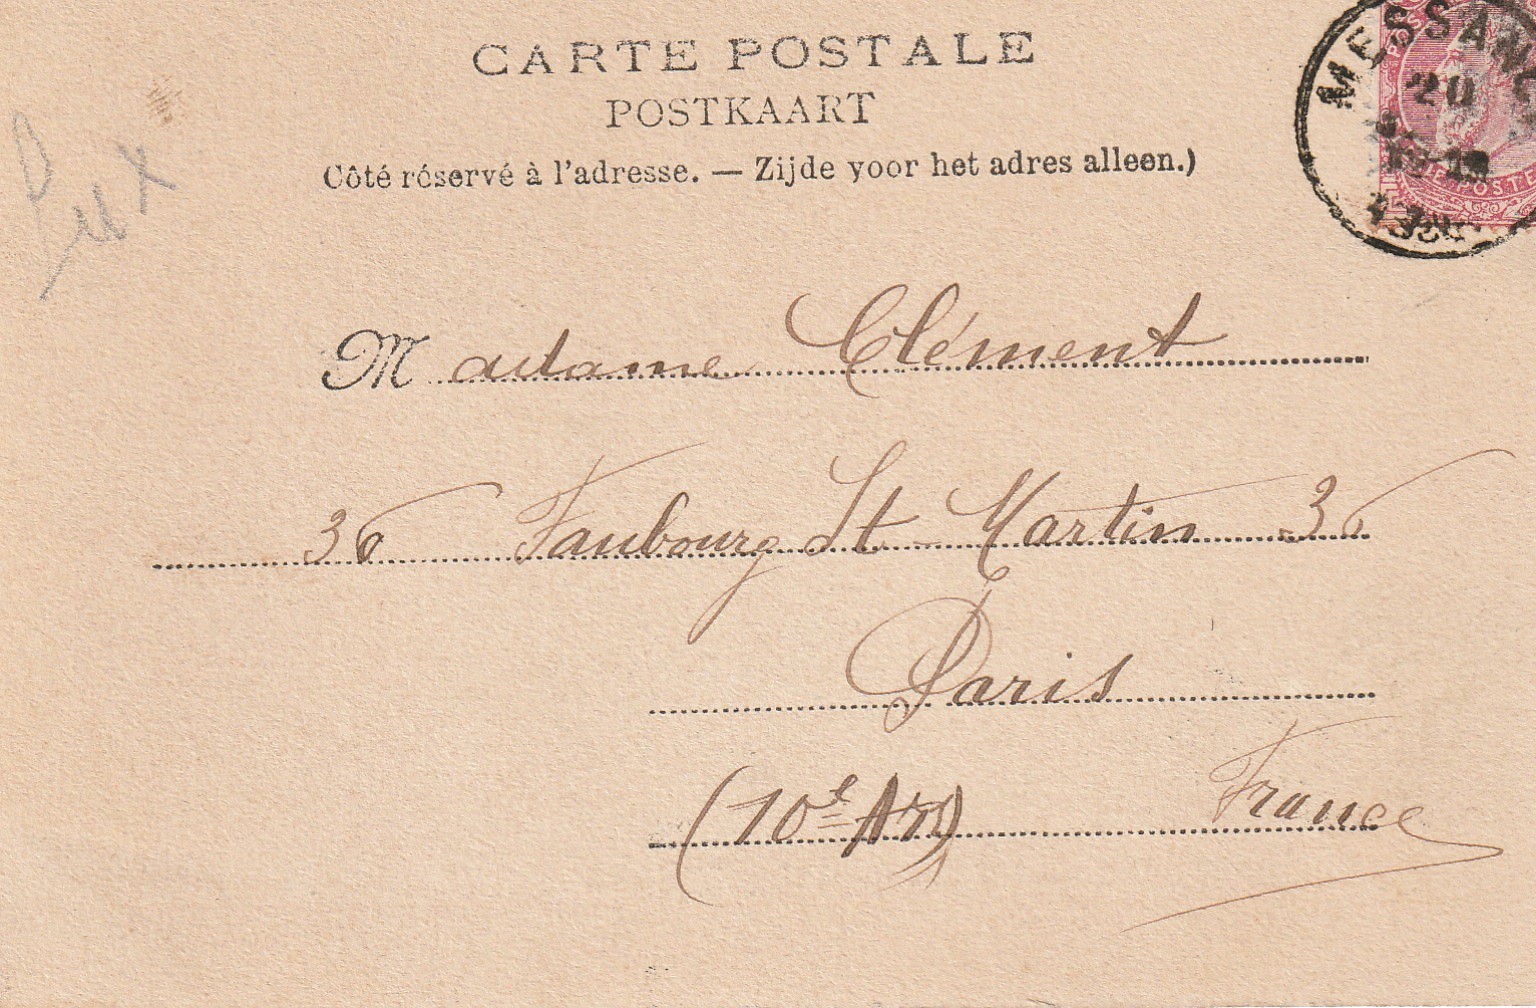 CARTE POSTALE
POSTKAART
Côté réservé à l'adresse. — Zijde voor het adres alleen.)
MESSANCY
20
Madame Clément
36 Faubourg St-Martin 36
Paris
(10e Arr)
France